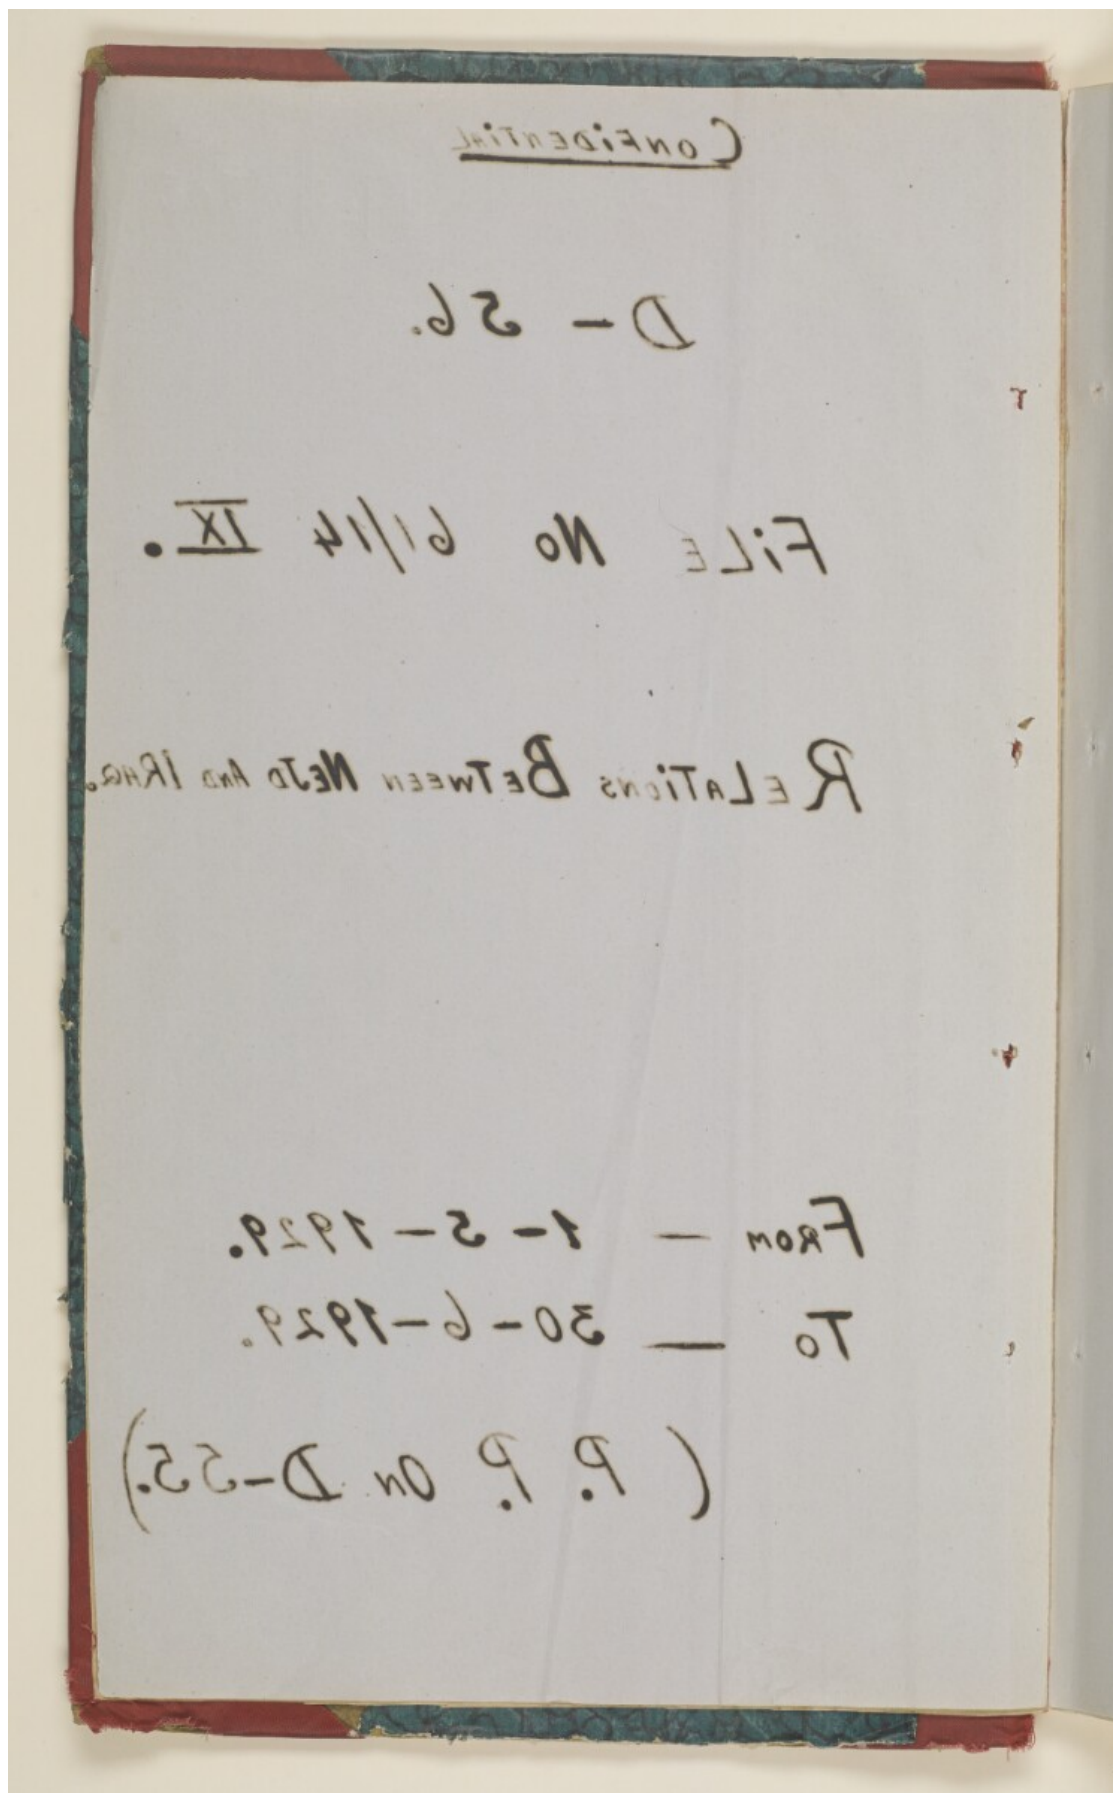 CONFIDENTIAL
D - 56.
FILE No 61/14 IX.
RELATIONS BETWEEN NEJD AND IRAQ.
FROM — 1 - 5 - 1929.
TO — 30 - 6 - 1929.
(P. P. On D - 55.)